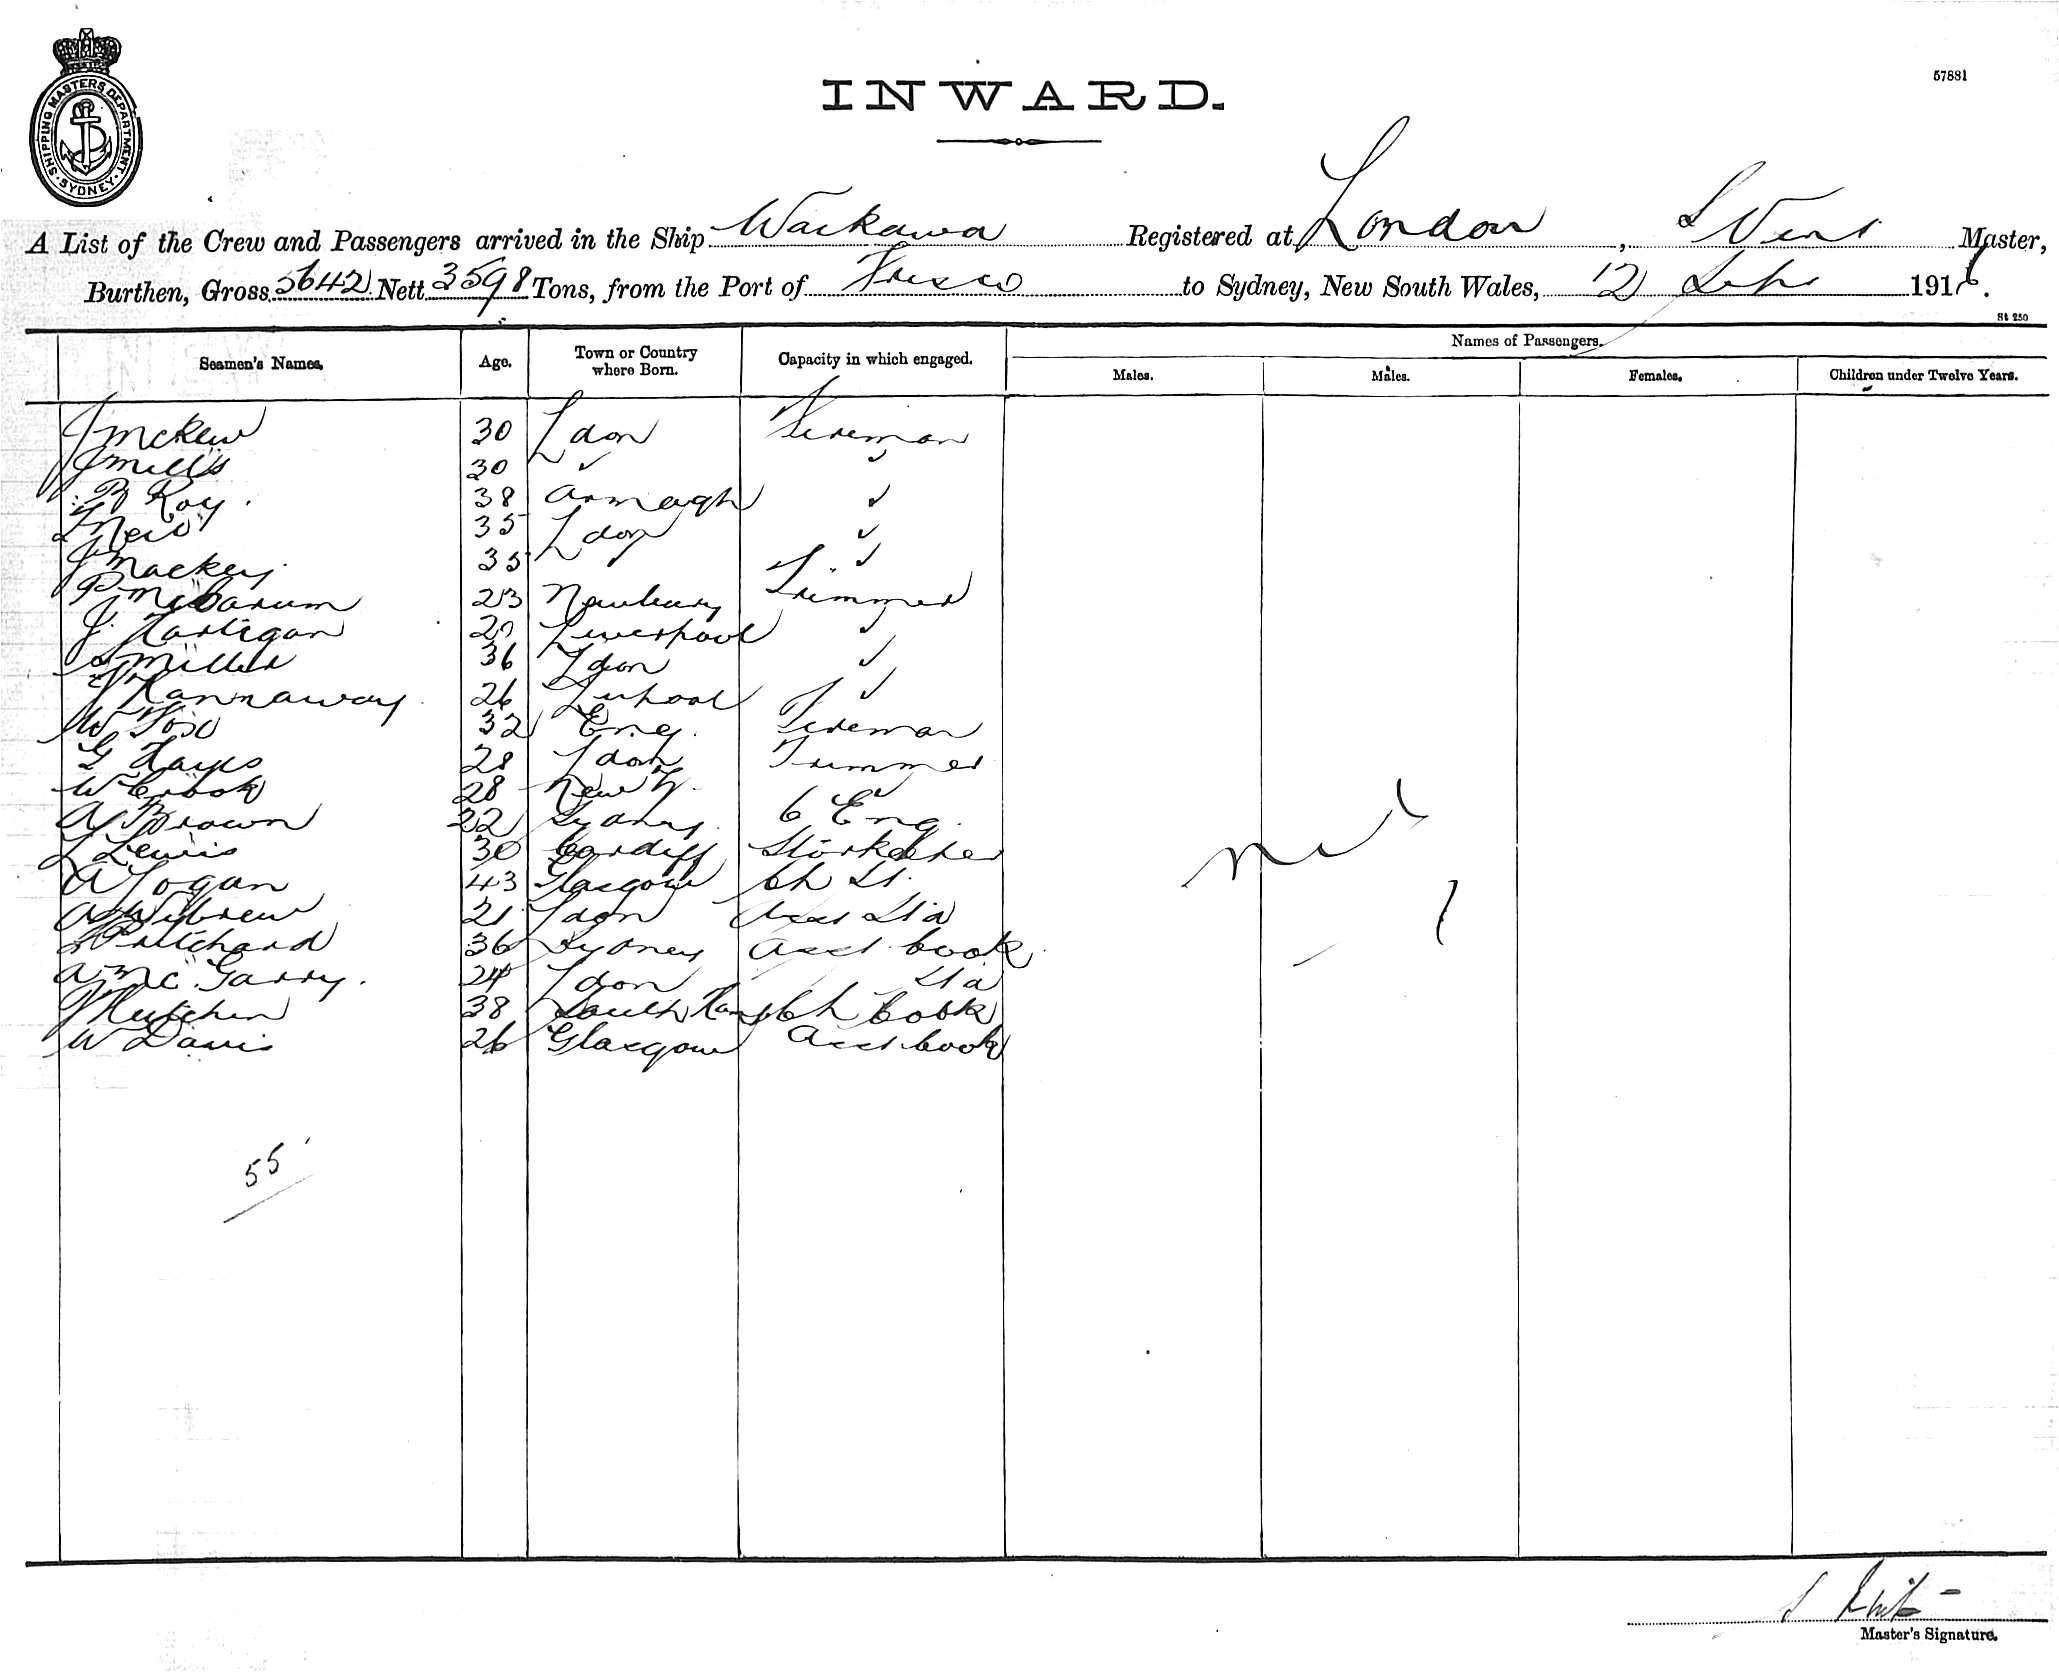 SHIPPING MASTERS DEPARTMENT SYDNEY
57881
INWARD.
A List of the Crew and Passengers arrived in the Ship Waikawa Registered at London, Master,
Burthen, Gross 5642 Nett 3598 Tons, from the Port of Frisco to Sydney, New South Wales, 12 Sept 1916.
St 250
Seamen's Names. Age. Town or Country where Born. Capacity in which engaged. Names of Passengers.
Males. Males. Females. Children under Twelve Years.
J McKew 30 Ldon Fireman
J Mills 30 ✓ ✓
R Roy 38 Armagh ✓
35 Ldon ✓
J Mackey 35 ✓
P 23 Newbury Trimmer
J Hartigan 27 Liverpool ✓
S Miller 36 Ldon ✓
J Hannaway 26 Lirpool ✓
W 32 Eng. Fireman
G Hayes 28 Ldon Trimmer
W Crook 28 New Y. ✓
A Brown 22 Sydney 6 Eng.
L Lewis 30 Cardiff Storkeeper
A Logan 43 Glasgow Ch St.
A Wybrew 21 Ldon Asst Std
L Pritchard 36 Sydney Asst Cook
A McGarry. 24 Ldon Std
J Hutchin 38 South Hamp Ch Cook
W Davis 26 Glasgow Asst Cook
Nil
55
Master's Signature.